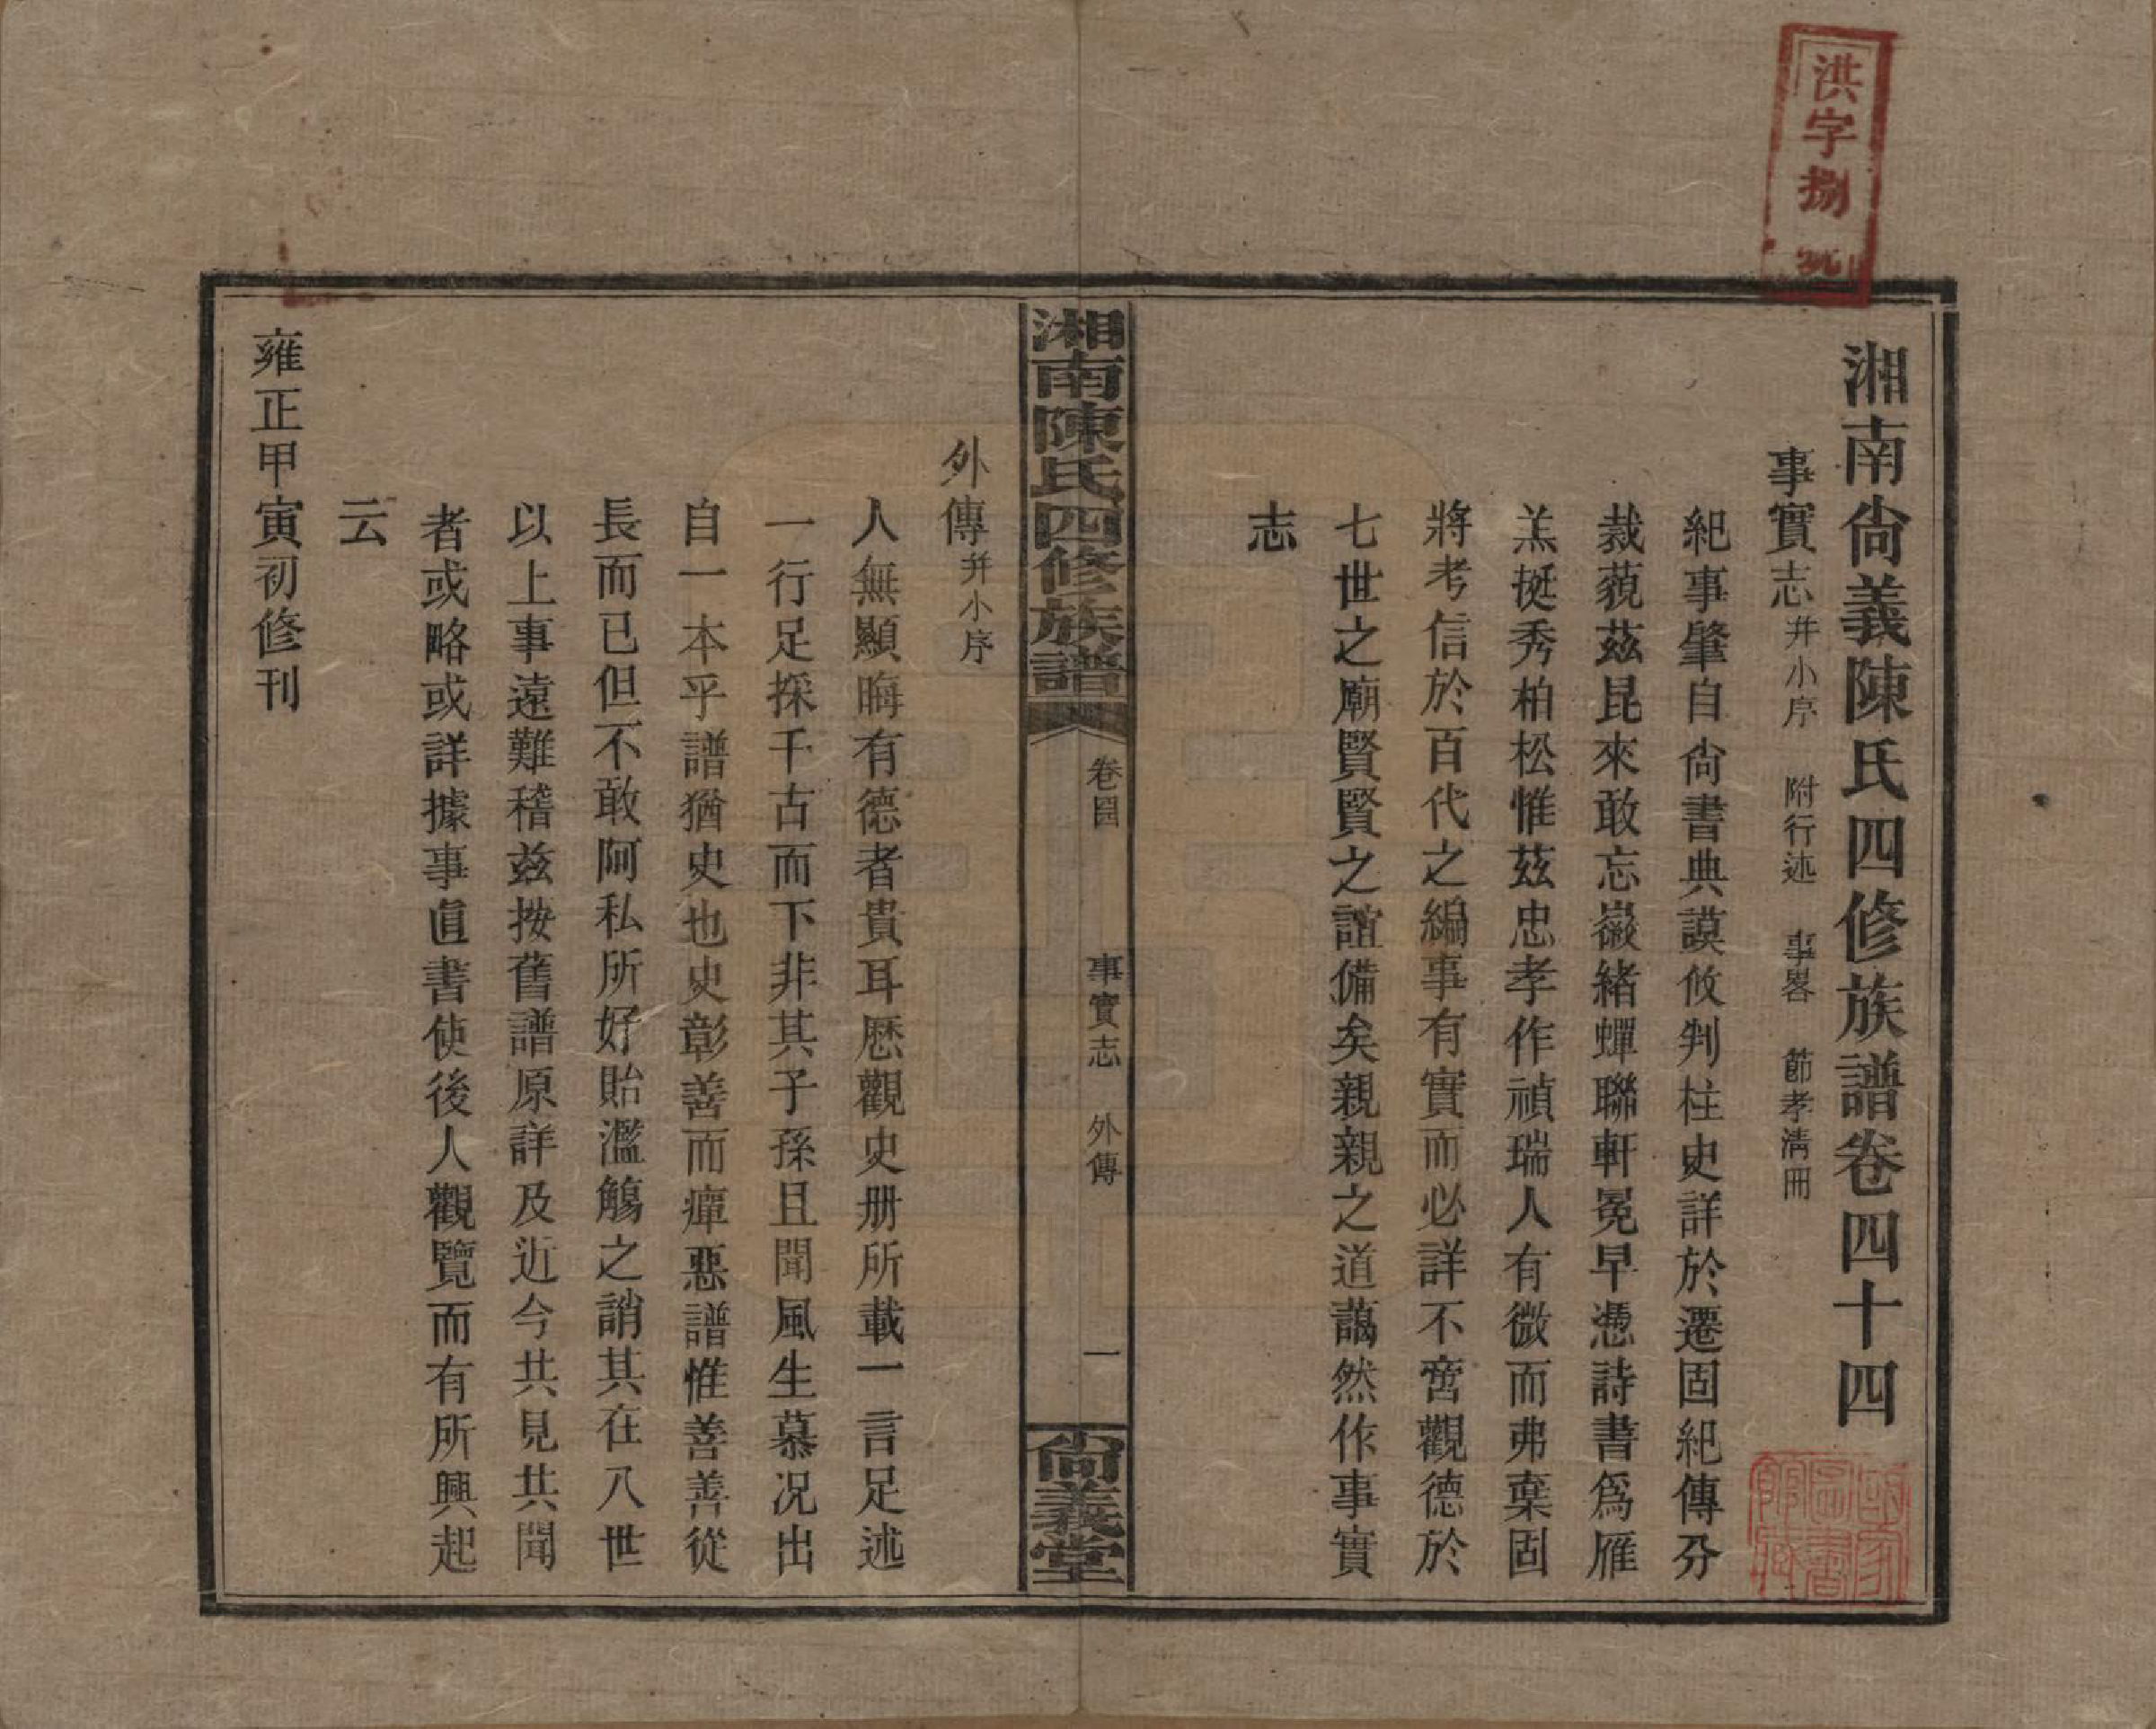 洪字捌號
湘南尙義陳氏四修族譜卷四十四
事實志 幷小序 附行述 事畧 節孝清冊
紀事肇自尙書典謨攸判柱史詳於遷固紀傳分
裁藐茲昆來敢忘嶽緒蟬聯軒冕早憑詩書爲雁
羔挺秀柏松惟茲忠孝作禎瑞人有微而弗棄固
將考信於百代之編事有實而必詳不啻觀德於
七世之廟賢賢之誼備矣親親之道藹然作事實
志
湘南陳氏四修族譜 卷四四 事實志 外傳 一 尙義堂
外傳 幷小序
人無顯晦有德者貴耳歷觀史册所載一言足述
一行足採千古而下非其子孫且聞風生慕况出
自一本乎譜猶史也史彰善而癉惡譜惟善善從
長而已但不敢阿私所好貽濫觴之誚其在八世
以上事遠難稽兹按舊譜原詳及近今共見共聞
者或略或詳據事直書使後人觀覽而有所興起
云
雍正甲寅初修刊